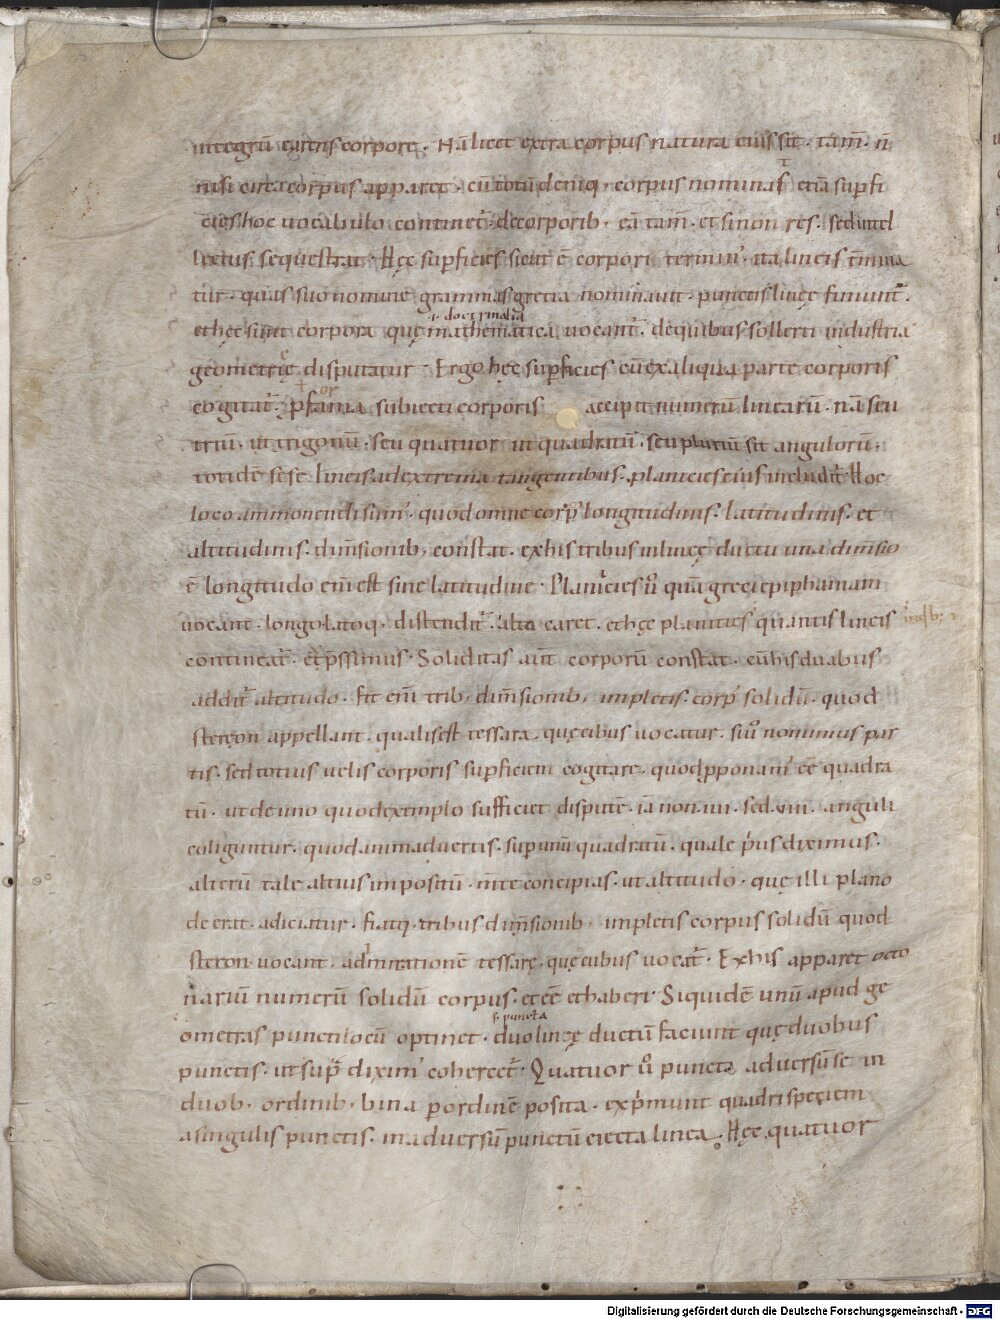 integrū carens corpore. Nā licet extra corpus natura eius sit. tam̄. n̄
nisi circa corpus apparet. cū totū deniq; corpus nominas etiā supfi
ciẹs hoc uocabulo continet᷑. de corporib; eā tam̄. et si non res. sed intel
lectus sequestrat. Hęc supficies sicut ē corpori terminꝰ. ita lineis t̄mina
tur. quas suo nomine grammas gretia nominauit. punctis linęę finiunt᷑.
.i. doctrinalia
et hęc sunt corpora quę mathematica uocant᷑. de quibus sollerti industria
geometrię disputatur. Ergo hęc supficies cū ex aliqua parte corporis
cogitat᷑. p forma subiecti corporis accipit numerū linearū. nā seu
triū. ut trigonū. seu quatuor ut quadratū. seu plurium sit angulorū.
totidē sese lineis ad extrema tangentibus. planicies eius includit᷑. Hoc
loco ammonendi sumꝰ. quod omne corpꝰ longitudinis. latitudinis. et
altitudinis. dim̄sionib; constat. ex his tribus in linęę ductu una dim̄sio
ē longitudo eni̅ est sine latitudine. Planicies uͦ quā greci epiphaniam
uocant. longo latoq. distendit᷑. alto caret. et hęc planities quantis lineis
contineat᷑. exp̄ssimus. Soliditas aut̄ corporū constat. cū his duabus
addit᷑ altitudo. fit eni̅ trib; dim̄sionib; impletis. corpꝰ solidū. quod
stereon appellant. qualis est tessara. quę cibus uocatur. Siuͦ non unius par
tis. sed totius uelis corporis supficiem cogitare. quod pponamꝰ eē quadra
tū. ut de uno quod exemplo sufficiet disputē. iā non. iiii. sed. viii. anguli
coliguntur. quod animaduertis. sup unū quadratū. quale p̍us diximus.
alterū tale altius impositū. m̄te concipias. ut altitudo. quę illi plano
deerat. adiciatur. fiatq. tribus dim̄sionib; impletis corpus solidū quod
steron uocant. ad imitationē tessarę. quę cubus uocat᷑. Ex his apparet octo
nariū numerū solidū corpus. et eē et haberi. Siquidē unū apud ge
f. puncta
ometras puncti locū optinet. duo linęę ductū faciunt quę duobus
punctis. ut supͣ diximꝰ coherect᷑. Quatuor uͦ puncta aduersū se in
duob. ordinib. bina p ordinē posita. exp̍munt quadri speciem
a singulis punctis. in aduersū punctū eiecta linea. Hęc quatuor
Digitalisierung gefördert durch die Deutsche Forschungsgemeinschaft - DFG